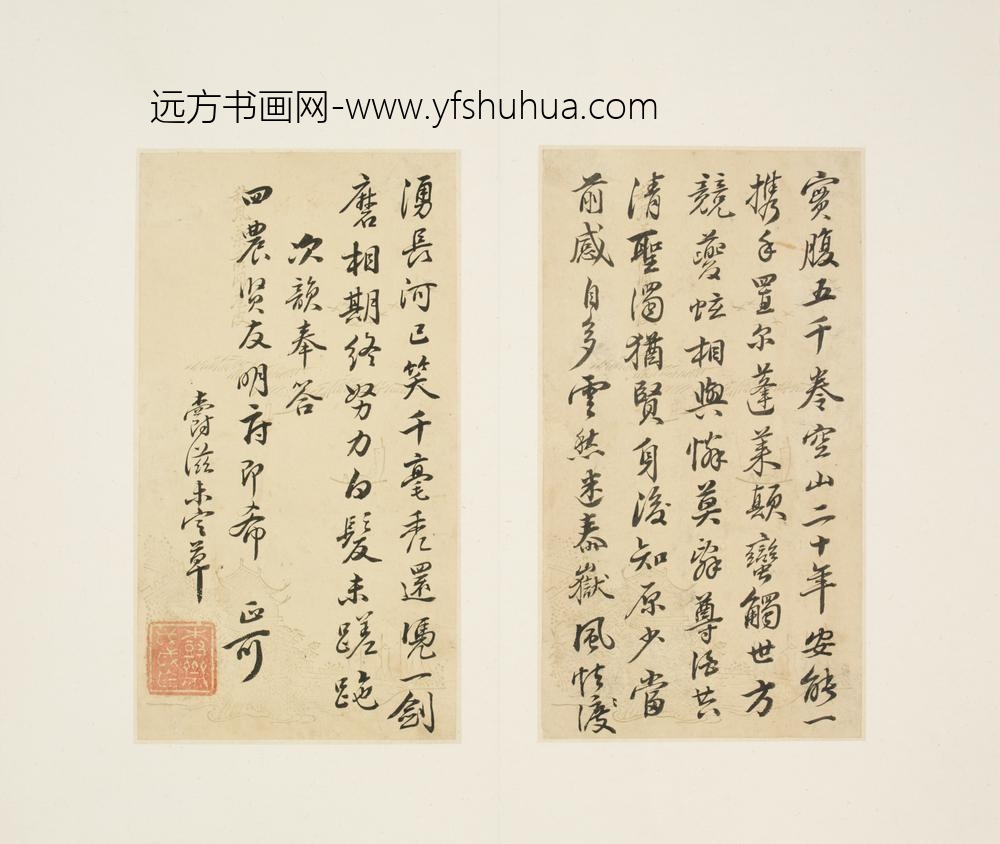 远方书画网-www.yfshuhua.com
實腹五千卷空山二十年安能一
携手置尔蓬莱顛蠻觸世方
競夔蚿相與憐莫辭尊酒共
清聖濁猶賢身後知原少當
前感自多雲愁迷泰嶽風快渡
湧長河已笑千毫禿還憑一劍
磨相期終努力白髮未蹉跎
次韻奉答
四農贤友明府即希 正可
爵滋未定草